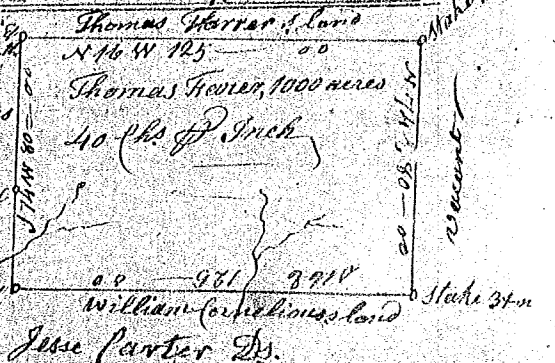 Thomas Farrer's land
N 16 W 125 — 00
Thomas Farrer, 1000 acres
40 Chs. P Inch
S 74 W 80 — 00
N 74 E 80 — 00
Vacant
S 16 E 125 — 00
William Cornelious's land
Stake 3x n
Stake
Jesse Carter Ds.